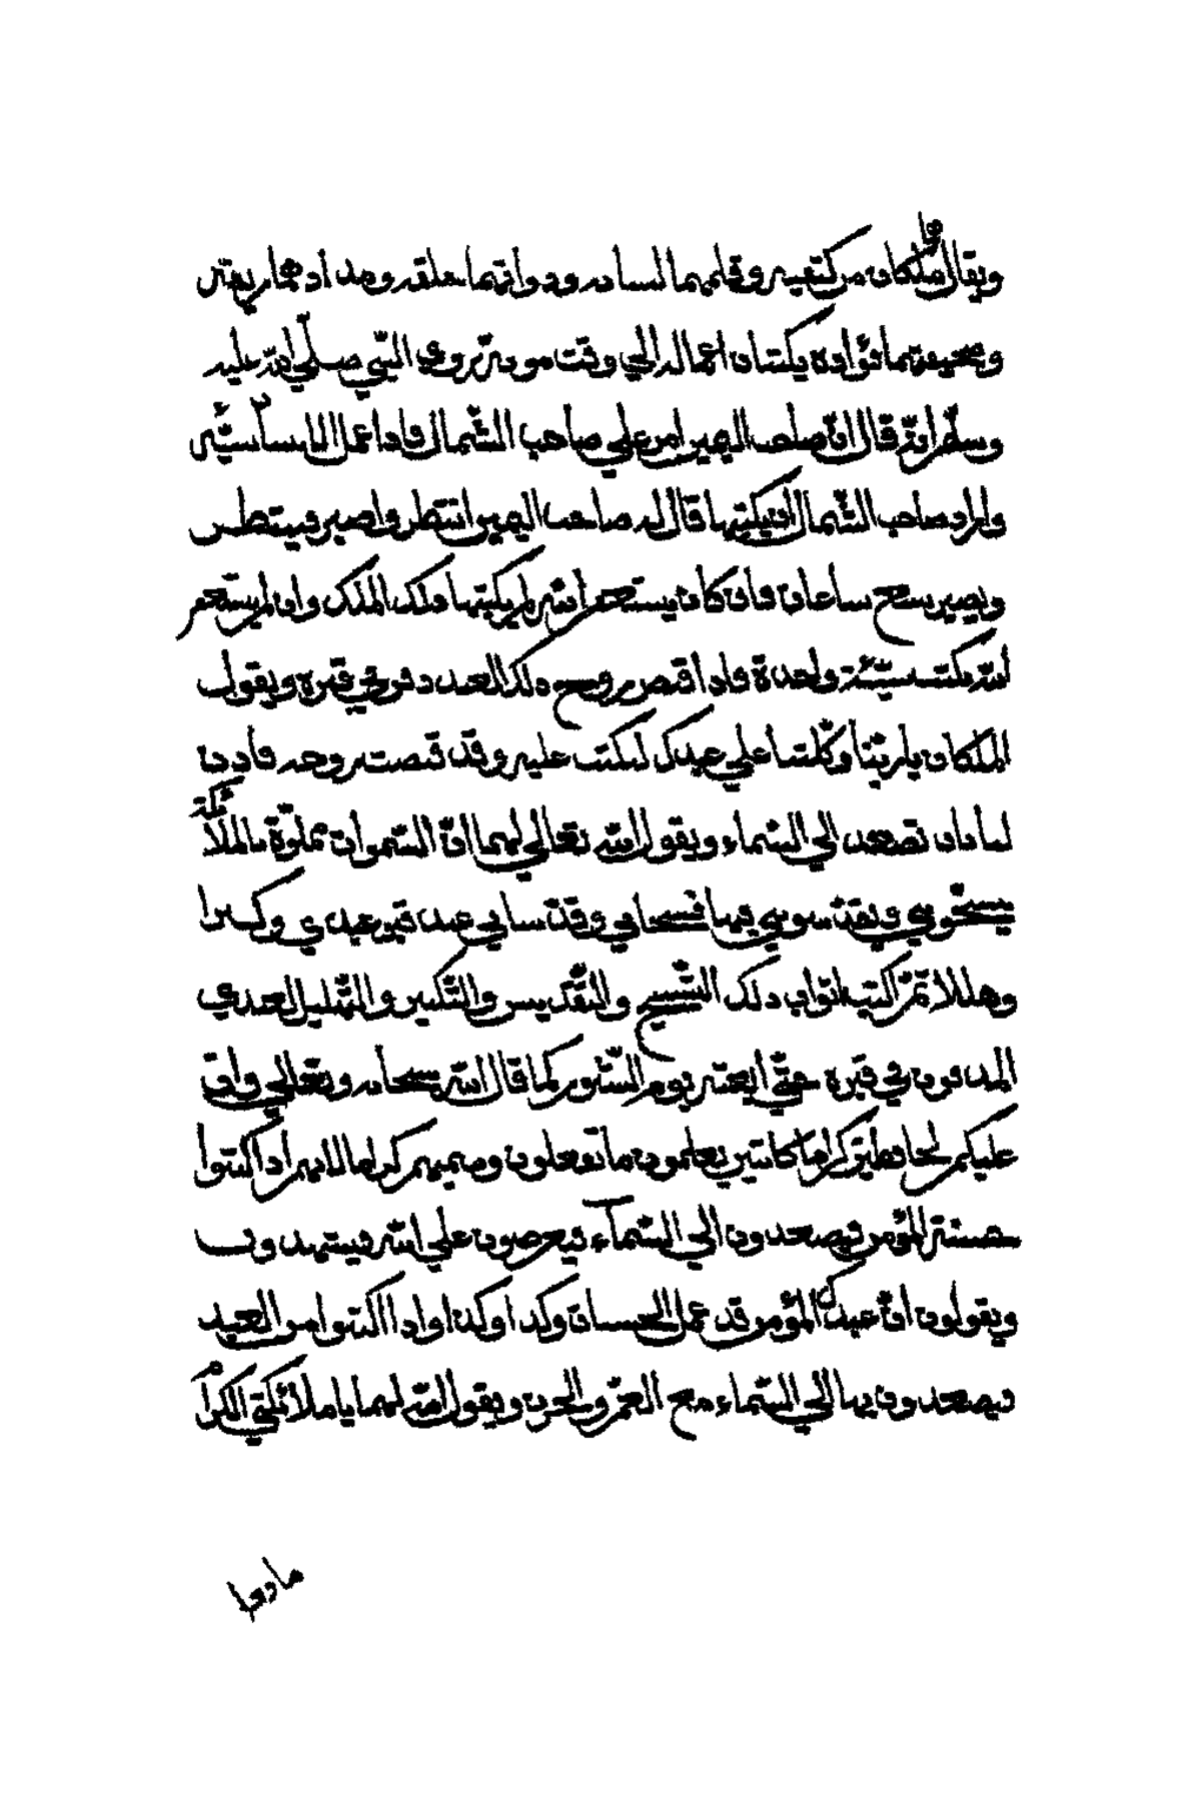 ويقال هما ملكان من كتفيه وقلمهما لسانه ودواتهما حلقه ومدادهما ريقه
وصحيفتهما فؤاده يكتبان اعماله الي وقت موته روي النبي صلي الله عليه
وسلم انه قال ان صاحب اليمين امين علي صاحب الشمال فاذا عمل الانسان سيئة
واراد صاحب الشمال ان يكتبها قال له صاحب اليمين انتظر واصبر فينتظر
ويصبر سبع ساعات فان كان يستغفر الله لم يكتبها ذلك الملك وان لم يستغفر
الله يكتب سيئة واحدة فاذا قبض روح ذلك العبد دفن في قبره ويقول
الملكان يا ربنا وكلتنا علي عبدك لنكتب عليه وقد قبضت روحه فاذن
لنا ان نصعد الي السماء ويقول الله تعالي لهما ان السموات مملوة بالملائكة
يسبحوني ويقدسوني فيها فسبحاني وقدساني عند قبر عبدي وكبرا
وهللا ثم اكتبا ثواب ذلك التسبيح والتقديس والتكبير والتهليل لعبدي
المدفون في قبره حتي ابعثه يوم النشور كما قال الله سبحانه وتعالي وان
عليكم لحافظين كراما كاتبين يعلمون ما تفعلون وسميهم كراما لانهم اذا كتبوا
حسنة المؤمن فيصعدون الي السماء فيعرضون علي الله فيشهدون
ويقولون ان عبدك المؤمن قد عمل الحسنات وكذا وكذا واذا كتبوا من العبد
فيصعدون بها الي السماء مع الغم والحزن ويقول الله لهما يا ملائكتي الكرام
ما دعوا